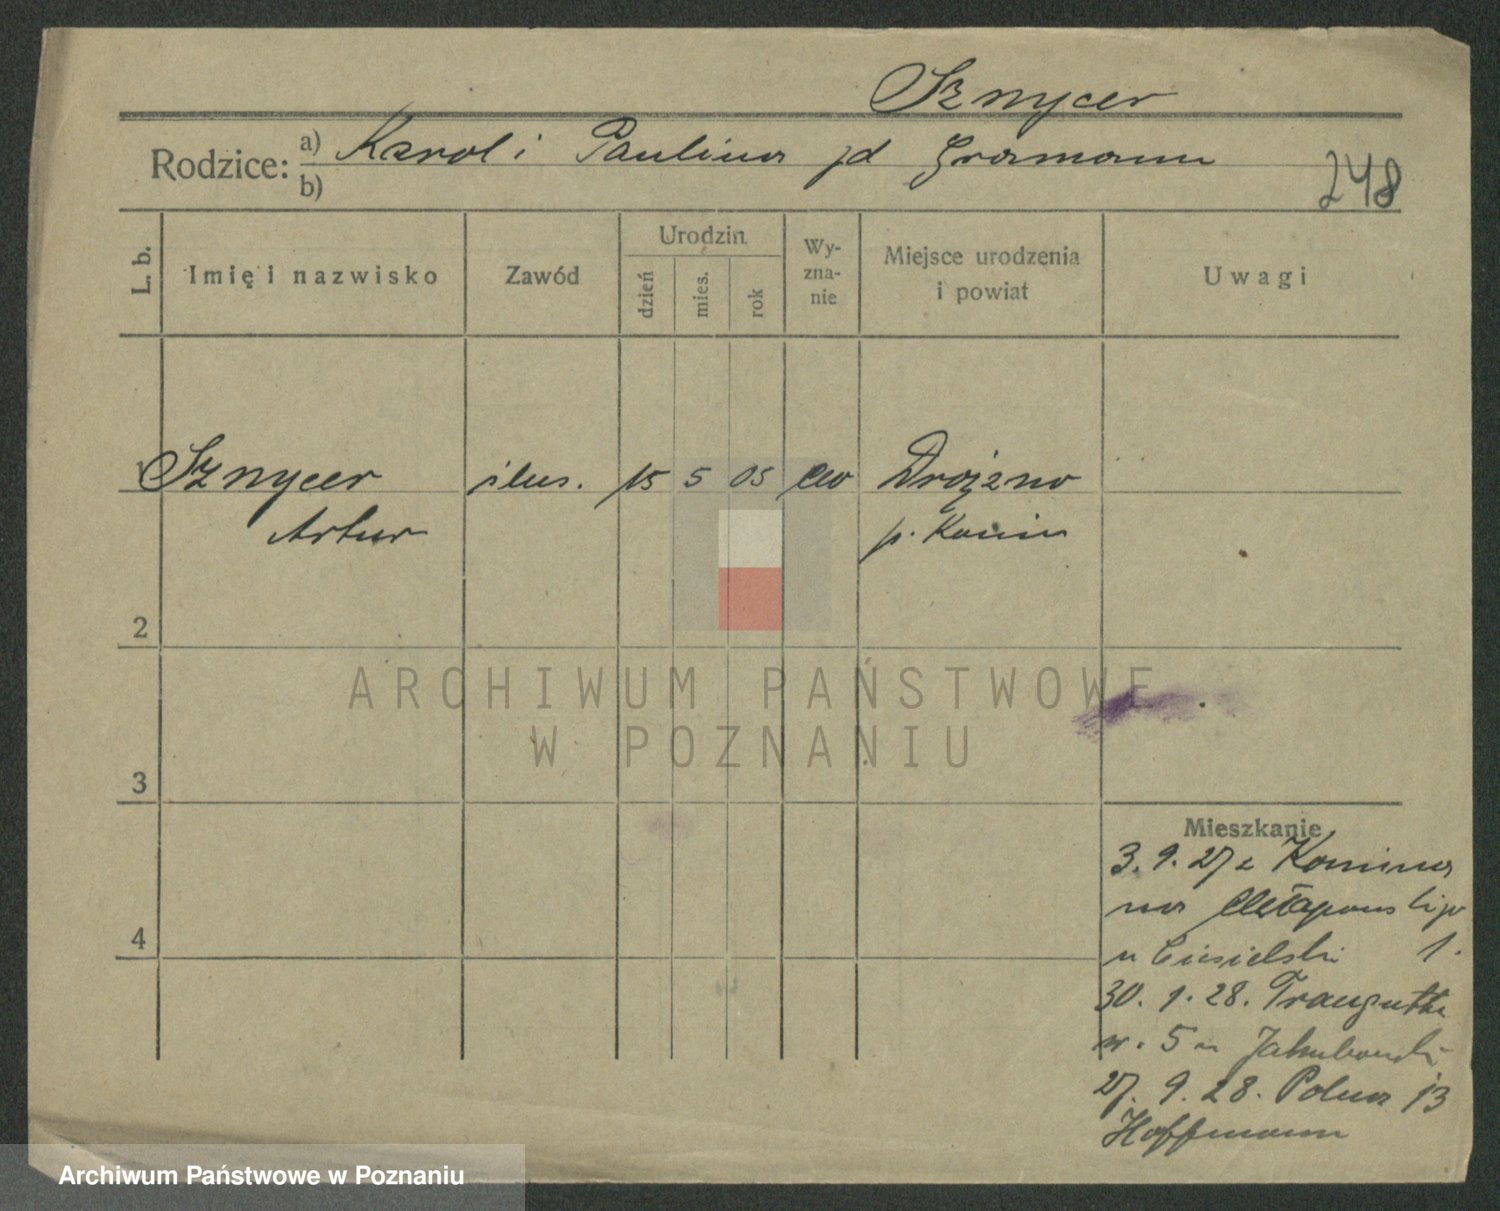 Sznycer
Rodzice: a) Karol i Paulina zd Gramann
b)
248
L. b. Imię i nazwisko Zawód Urodzin dzień mies. rok Wy-zna-nie Miejsce urodzenia i powiat Uwagi
1 Sznycer ślus. 15 5 05 ew Drążno
Artur p. Konin
2
ARCHIWUM PAŃSTWOWE
W POZNANIU
3
Mieszkanie
3. 9. 27 z Konina
na
4
u Ciesielski 1.
30. 1. 28. Traugutta
nr. 5 u Jakubowski
27. 9. 28. Polna 13
Hoffmann
Archiwum Państwowe w Poznaniu